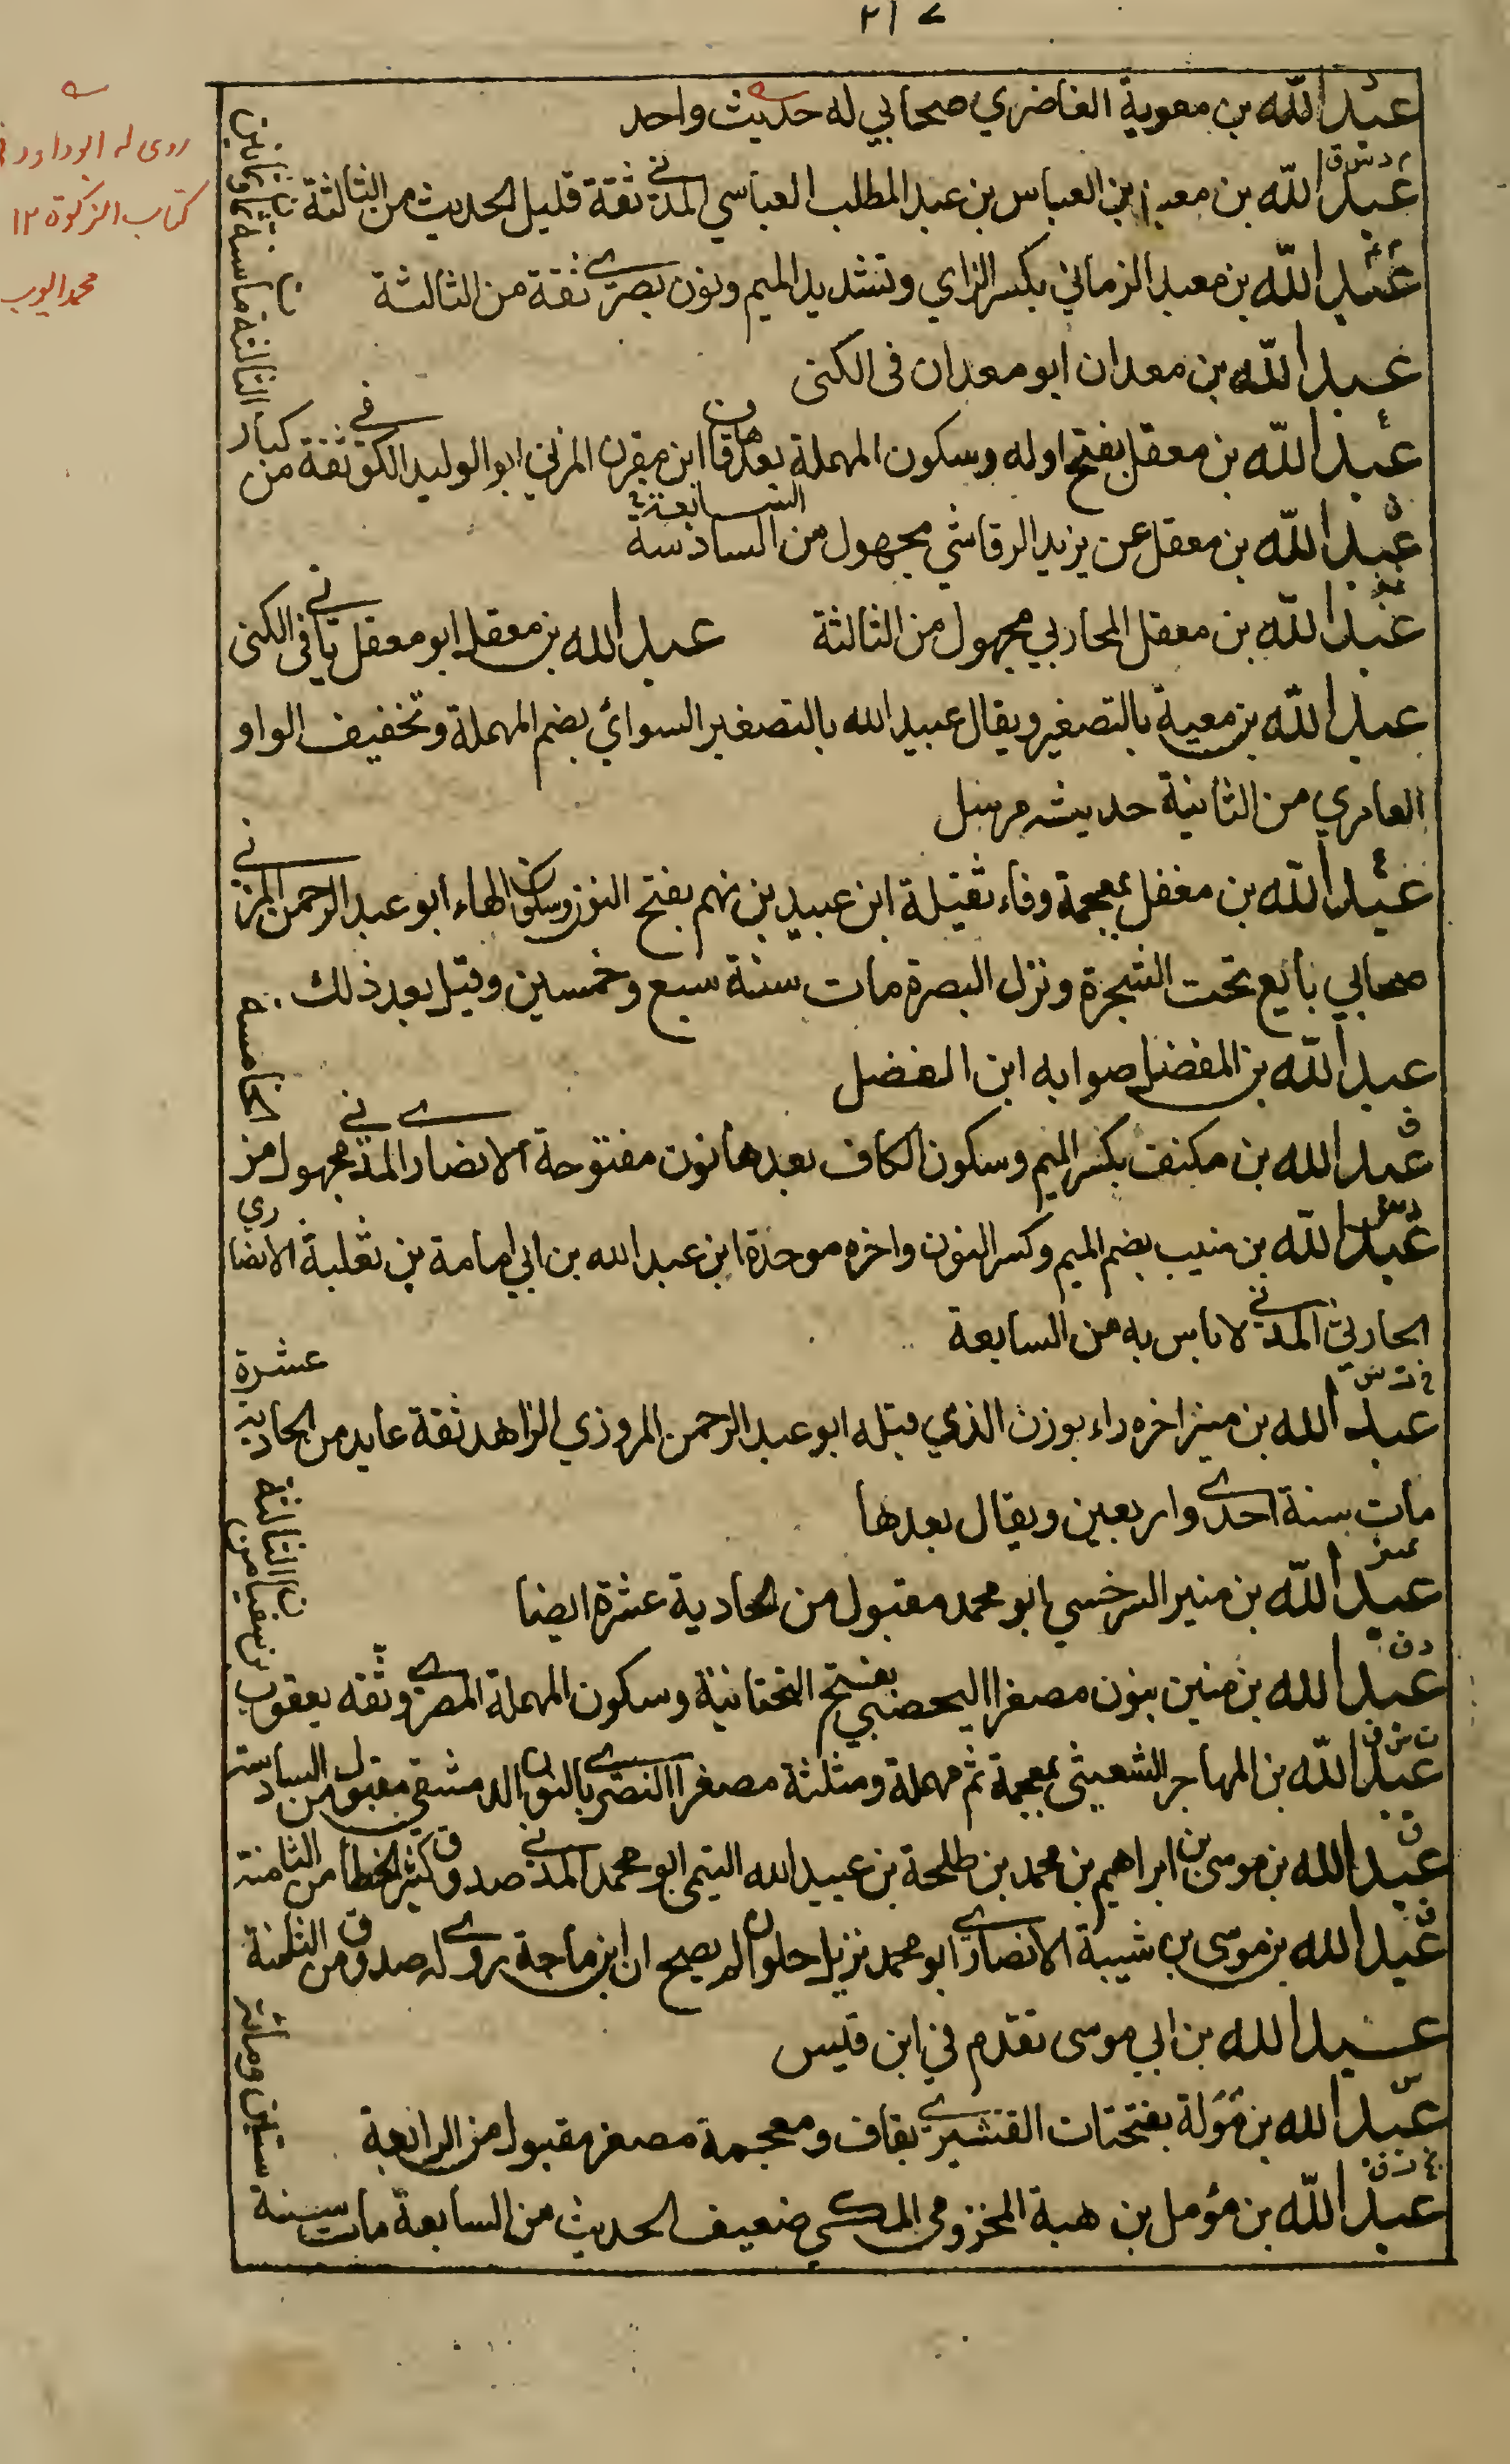 ٢١٧
عبد الله بن معوية الغاضري صحابي له حديث واحد
روى له ابو داود في
كتاب الزكوة ١٢
محمد ايوب
م د س ق
عبد الله بن معبد بن العباس بن عبد المطلب العباسي المدني ثقة قليل الحديث من الثالثة
م ٤
عبد الله بن معبد الزماني بكسر الزاي وتشديد الميم ونون بصري ثقة من الثالثة
عبد الله بن معدان ابو معدان في الكنى
عبد الله بن معقل بفتح اوله وسكون المهملة بعدها قاف ابن مقرن المزني ابو الوليد الكوفي ثقة من كبار
الثالثة مات سنة ثمان وثمانين
ق
عبد الله بن معقل عن يزيد الرقاشي مجهول من السادسة
السابعة
تمييز
عبد الله بن معقل المحاربي مجهول من الثالثة عبد الله بن معقل ابو معقل ياتي في الكنى
عبد الله بن معية بالتصغير ويقال عبيد الله بالتصغير السوائي بضم المهملة وتخفيف الواو
العامري من الثانية حديثه مرسل
ع
عبد الله بن مغفل بمعجمة وفاء ثقيلة ابن عبيد بن نهم بفتح النون وسكون الهاء ابو عبد الرحمن المزني
صحابي بايع تحت الشجرة ونزل البصرة مات سنة سبع وخمسين وقيل بعد ذلك
عبد الله بن المفضل صوابه ابن الفضل
ق
عبد الله بن مكنف بكسر الميم وسكون الكاف بعدها نون مفتوحة الانصاري المدني مجهول من
الخامسة
د س
عبد الله بن منيب بضم الميم وكسر النون واخره موحدة ابن عبد الله بن ابي امامة بن ثعلبة الانصاري
الحارثي المدني لا باس به من السابعة
خ ت س
عبد الله بن منير اخره راء بوزن الذي قبله ابو عبد الرحمن المروزي الزاهد ثقة عابد من الحادية عشرة
مات سنة احدى واربعين ويقال بعدها
تمييز
عبد الله بن منير السرخسي ابو محمد مقبول من الحادية عشرة ايضا
د ق
عبد الله بن منين بنون مصغرا اليحصبي بفتح التحتانية وسكون المهملة المصري وثقه يعقوب
بن سفيان من الثالثة
ت س ق
عبد الله بن المهاجر الشعيثي بمعجمة ثم مهملة ومثلثة مصغرا النصري بالنون الدمشقي مقبول من السادسة
ق
عبد الله بن موسى بن ابراهيم بن محمد بن طلحة بن عبيد الله التيمي ابو محمد المدني صدوق كثير الخطأ من الثامنة
ق
عبد الله بن موسى بن شيبة الانصاري ابو محمد نزيل حلوان لم يصح ان ابن ماجة روى له صدوق من الثامنة
عبد الله بن ابي موسى تقدم في ابن قيس
س
عبد الله بن مؤلة بفتحتات القشيري بقاف ومعجمة مصغر مقبول من الرابعة
بخ ت ق
عبد الله بن مؤمل بن هبة المخزومي المكي ضعيف الحديث من السابعة مات سنة
ستين ومائة